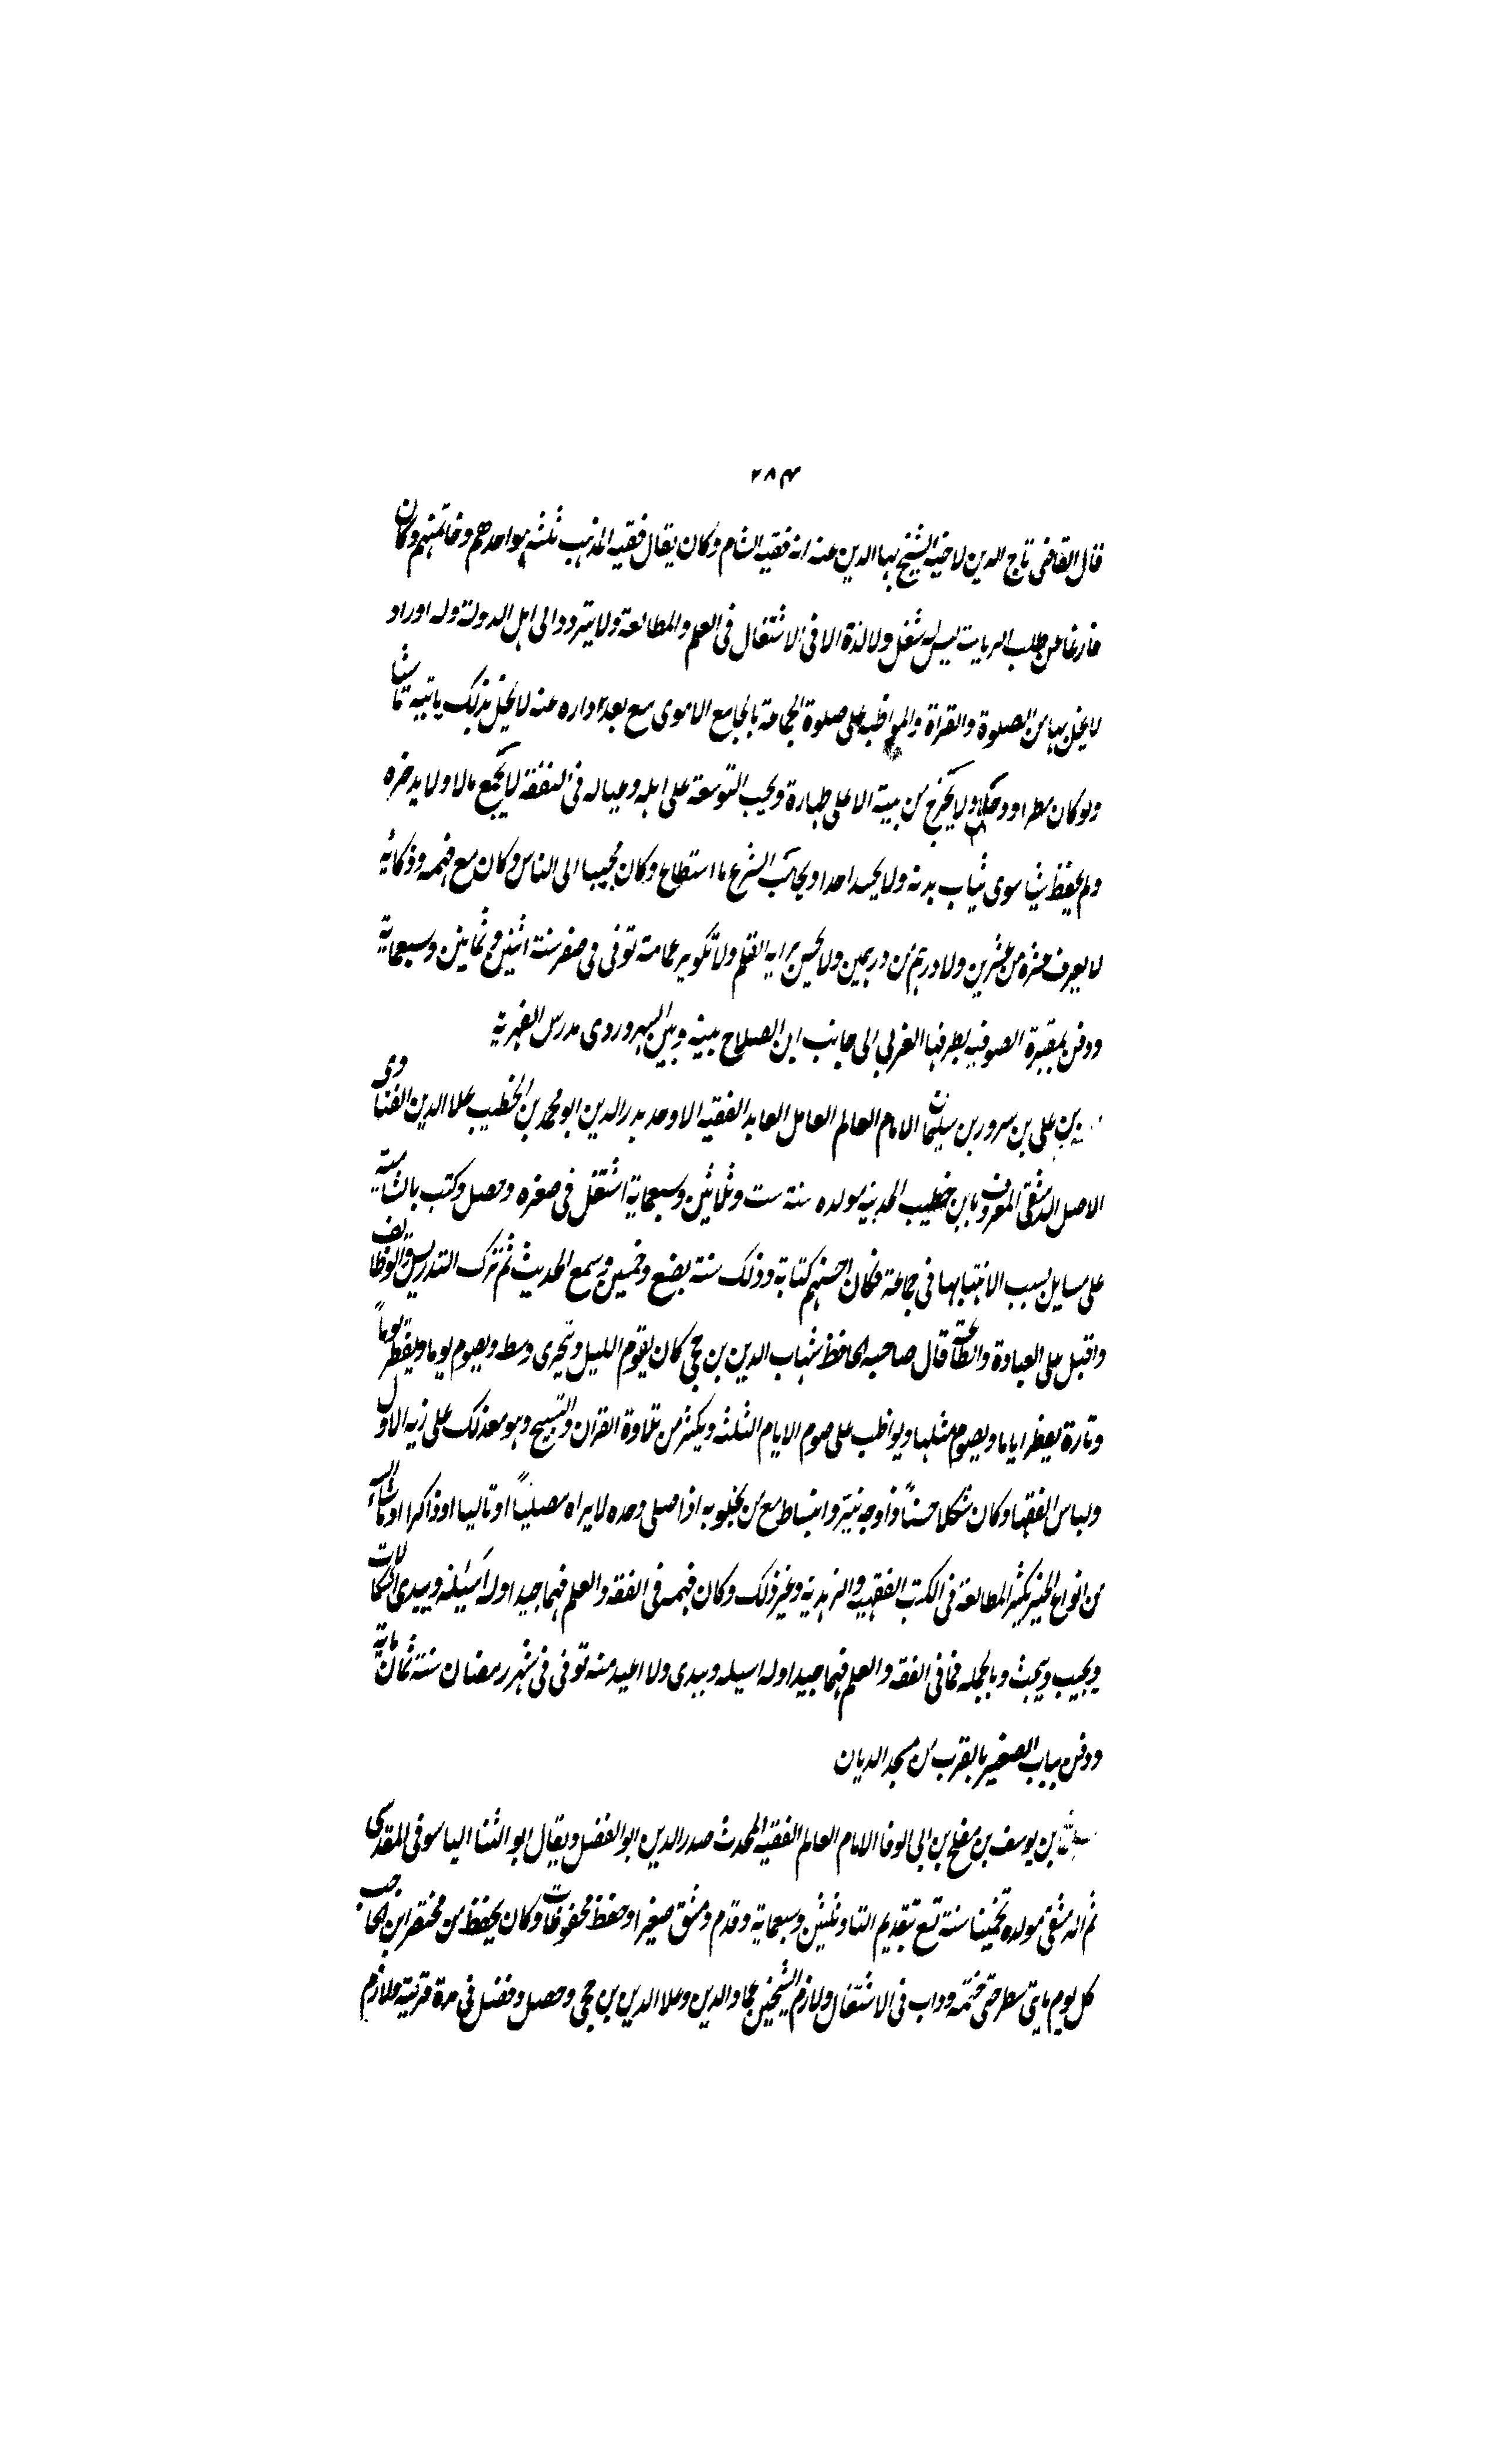 ٢٨٣
قال القاضى تاج الدين لاخيه الشيخ بها الدين عنه انه فقيه الشام وكان يقال فقيه المذهب ثلثه هو احدهم وخاتمتهم وكان
فارغا عن طلب الرياسة ليس له شغل ولا لذة الا فى الاشتغال فى العلم والمطالعة ولا يتردد الى اهل الدولة وله اوراد
لا يخل بها من الصلوة والقراة والمواظبه على صلوة الجماعة بالجامع الاموى مع بعد داره عنه لا يخل بذلك ياتيه ماشيا
ولو كان مطرا ووحلا ولا يخرج من بيته الا على طهارة ويحب التوسعة على اهله وعياله فى النفقة لا يجمع مالا ولا يدخره
ولم يحفظ شيا سوى ثياب بدنه ولا يحسد احدا ويحابب الشرع ما استطاع وكان محببا الى الناس وكان مع فهمه وذكائه
لا يعرف عشرة من عشرين ولا درهم من درهمين ولا يحسن براية القلم ولا تكوير عمامة توفى فى صفر سنة اثنين وثمانين وسبعماية
ودفن بمقبرة الصوفيه بطرفها الغربى الى جانب ابن الصلاح بينه وبين السهروردى مدرس القهرية
بن على بن سرور بن سليمان الامام العالم العامل العابد الفقيه الاوحد بدر الدين ابو محمد بن الخطيب علا الدين الفناوى
الاصل الدمشقى المعروف بابن خطيب الحديثه مولده سنة ست وثلاثين وسبعماية اشتغل فى صغره وحصل وكتب بالشامية
على مسايل بسبب الانتهابها فى جماعة فكان احسنهم كتابة وذلك سنة بضع وخمسين وسمع الحديث ثم ترك التدريس والوظايف
واقبل على العبادة والطاعة قال صاحبه الحافظ شهاب الدين بن حجى كان يقوم الليل ويتحرى وسطه ويصوم يوما ويفطر يوماً
وتارة يفطر اياما ويصوم مثلها ويواظب على صوم الايام الثلثه ويكثر من تلاوة القران والتسبيح وهو مع ذلك على زيه الاول
ولباس الفقها وكان شكلا حسناً وذا وجه نيّر وانبساط مع من يخلو به اذا صلى وحده لا يراه مصلياً او تاليا او ذاكرا او ماشاء الله
من انواع الخير كثير المطالعة فى الكتب الفقهيه والزهدية وغير ذلك وكان فهمه فى الفقه والعلم فهما جيدا وله اسيلة ويبدى اشكالات
ويجيب ويبحث وبالجمله فما فى الفقه والعلم فهما جيدا وله اسيله ويبدى ولا اعبد منه توفى فى شهر رمضان سنة ثمان ماية
ودفن بباب الصغير بالقرب من مسجد الديان
بن يوسف بن مفلح بن ابى الوفا الامام العالم الفقيه المحدث صدر الدين ابو الفضل ويقال ابو الثنا الياسوفى المقدسى
ثم الدمشقى مولده تخمينا سنة تسع بتقديم التا وثلثين وسبعماية وقدم دمشق صغيرا وحفظ محفوظات وكان يحفظ من مختصر ابن الحاجب
كل يوم مايتى سطر حتى ختمه وداب فى الاشتغال ولازم الشيخين عماد الدين وعلا الدين بن حجى وحصل وفضل فى مدة قريبه ملازم